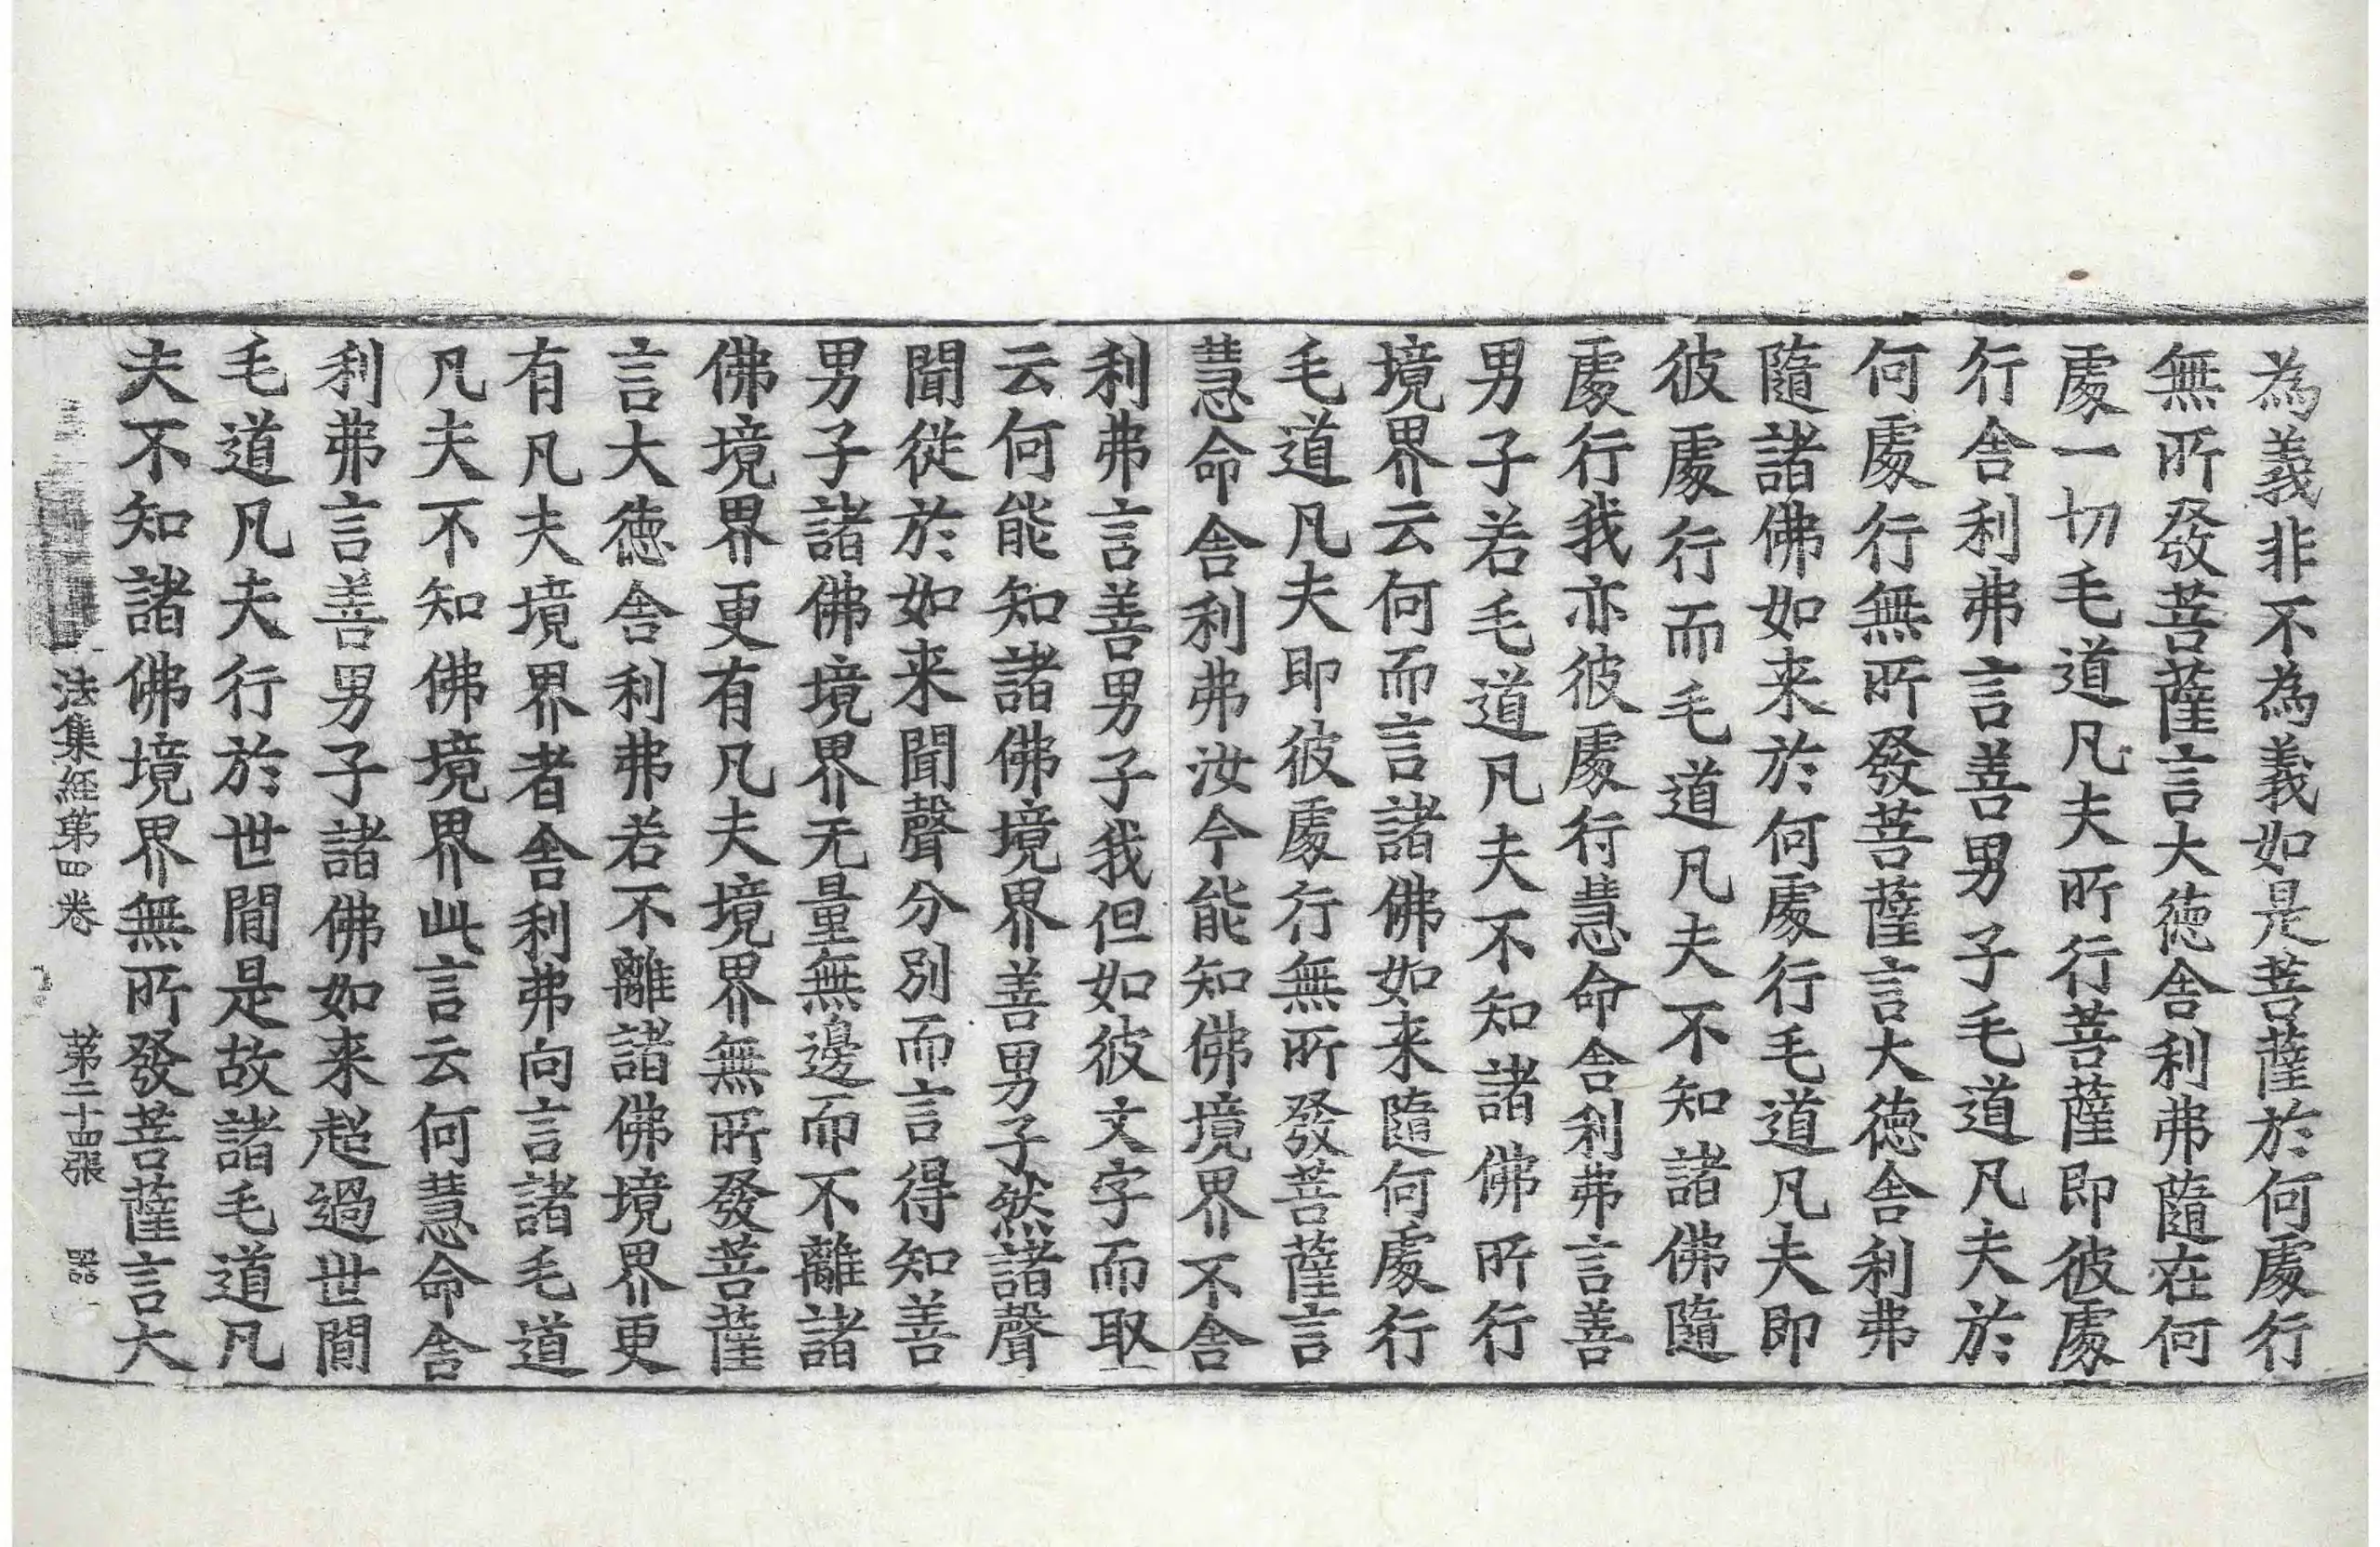 為義非不為義如是菩薩於何處行
無所發菩薩言大德舍利弗隨在何
處一切毛道凡夫所行菩薩即彼處
行舍利弗言善男子毛道凡夫於
何處行無所發菩薩言大德舍利弗
隨諸佛如来於何處行毛道凡夫即
彼處行而毛道凡夫不知諸佛隨
處行我亦彼處行慧命舍利弗言善
男子若毛道凡夫不知諸佛所行
境界云何而言諸佛如来隨何處行
毛道凡夫即彼處行無所發菩薩言
慧命舍利弗汝今能知佛境界不舍
利弗言善男子我但如彼文字而取
云何能知諸佛境界善男子然諸聲
聞從於如来聞聲分別而言得知善
男子諸佛境界无量無邊而不離諸
佛境界更有凡夫境界無所發菩薩
言大德舍利弗若不離諸佛境界更
有凡夫境界者舍利弗向言諸毛道
凡夫不知佛境界此言云何慧命舍
利弗言善男子諸佛如来超過世間
毛道凡夫行於世間是故諸毛道凡
夫不知諸佛境界無所發菩薩言大
法集経第四卷 第二十四張 器